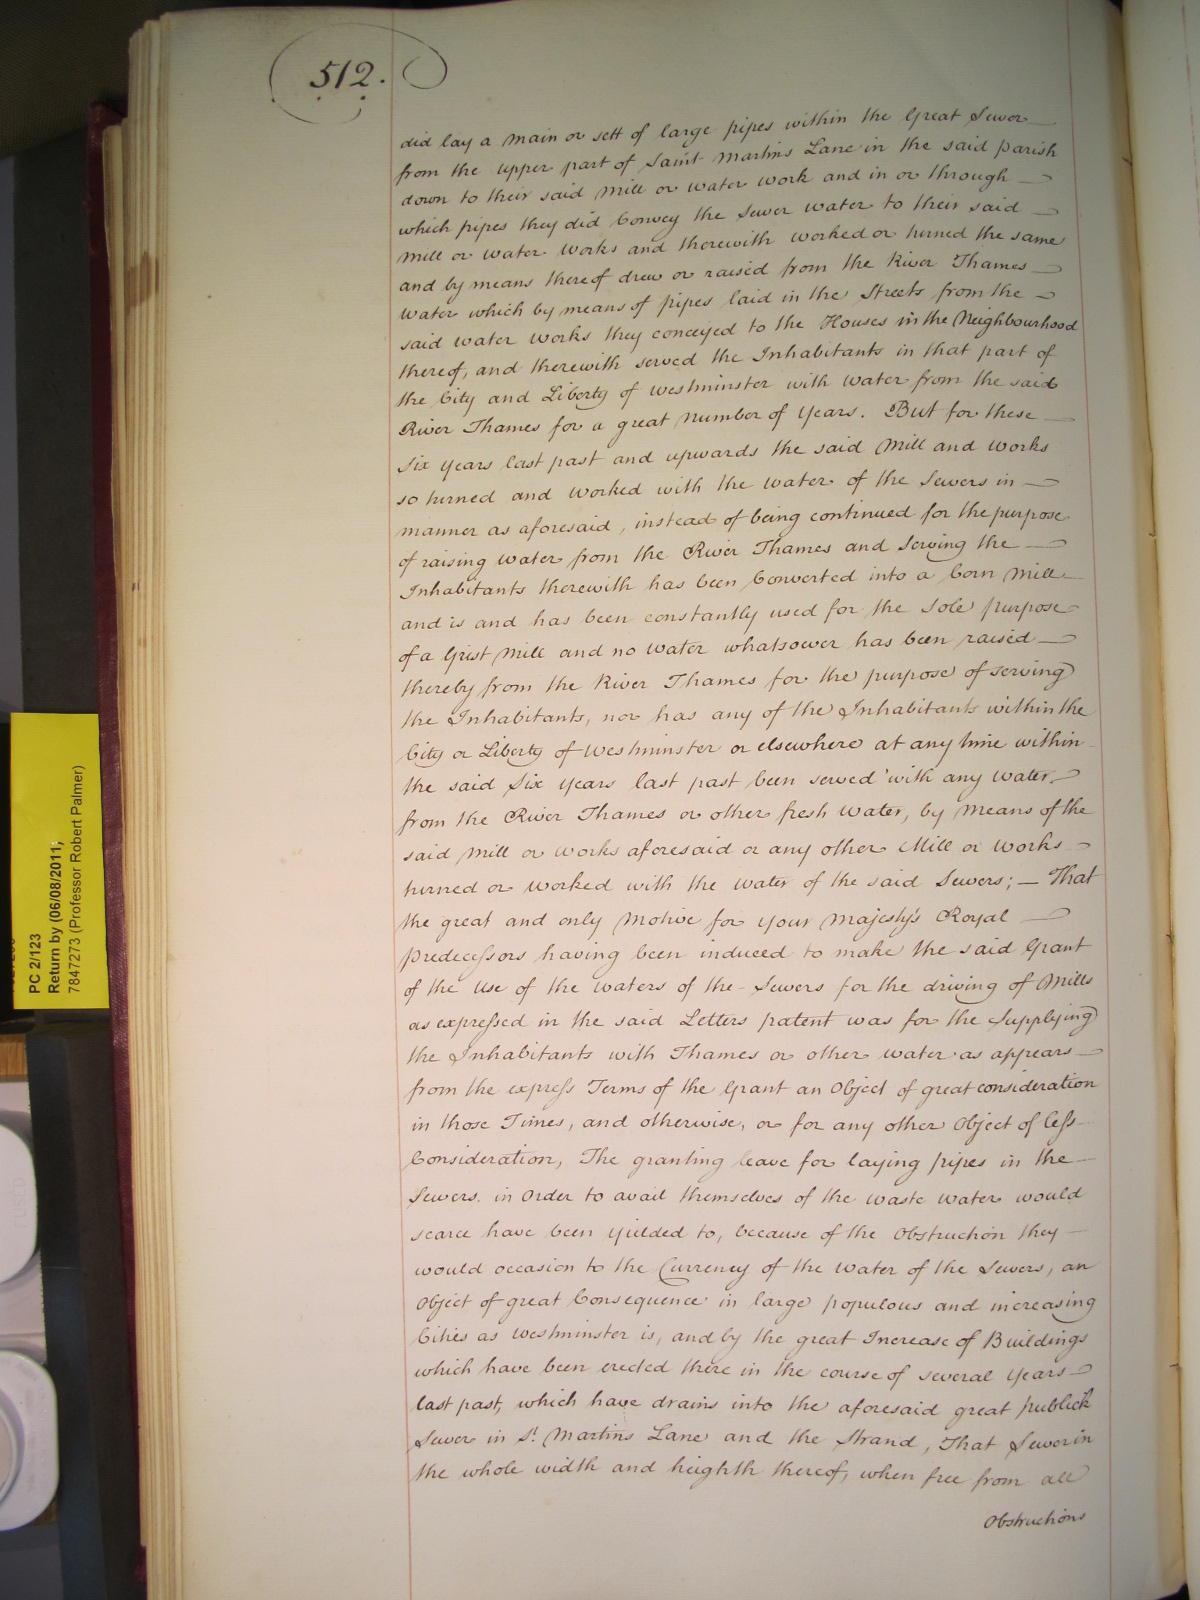 512.
did lay a main or sett of large pipes within the Great Sewer
from the upper part of Saint Martins Lane in the said parish
down to their said Mill or water work and in or through
which pipes they did Convey the Sewer water to their said
Mill or water works and therewith worked or turned the same
and by means thereof drew or raised from the River Thames
water which by means of pipes laid in the Streets from the
said water works they conveyed to the Houses in the Neighbourhood
thereof, and therewith served the Inhabitants in that part of
the City and Liberty of Westminster with water from the said
River Thames for a great Number of Years. But for these
Six years last past and upwards the said Mill and works
so turned and worked with the water of the Sewers in
manner as aforesaid, instead of being continued for the purpose
of raising water from the River Thames and serving the
Inhabitants therewith has been Converted into a Corn Mill
and is and has been constantly used for the sole purpose
of a Grist Mill and no water whatsoever has been raised
thereby from the River Thames for the purpose of serving
the Inhabitants, nor has any of the Inhabitants within the
City or Liberty of Westminster or elsewhere at any time within
the said Six years last past been served with any water
from the River Thames or other fresh water, by means of the
said Mill or works aforesaid or any other Mill or works
turned or worked with the water of the said Sewers; — That
the great and only Motive for your Majesty's Royal
predecessors having been induced to make the said Grant
of the use of the waters of the Sewers for the driving of Mills
as expressed in the said Letters patent was for the supplying
the Inhabitants with Thames or other water as appears
from the express Terms of the Grant an Object of great consideration
in those Times, and otherwise, or for any other Object of less
Consideration, The granting leave for laying pipes in the
Sewers in Order to avail themselves of the waste water would
scarce have been yielded to, because of the Obstruction they
would occasion to the Currency of the water of the Sewers, an
Object of great Consequence in large populous and increasing
Cities as Westminster is, and by the great Increase of Buildings
which have been erected there in the course of several years
last past, which have drains into the aforesaid great publick
Sewer in St. Martins Lane and the Strand, That Sewer in
the whole width and heighth thereof, when free from all
Obstructions
PC 2/123
Return by (06/08/2011;
7847273 (Professor Robert Palmer)